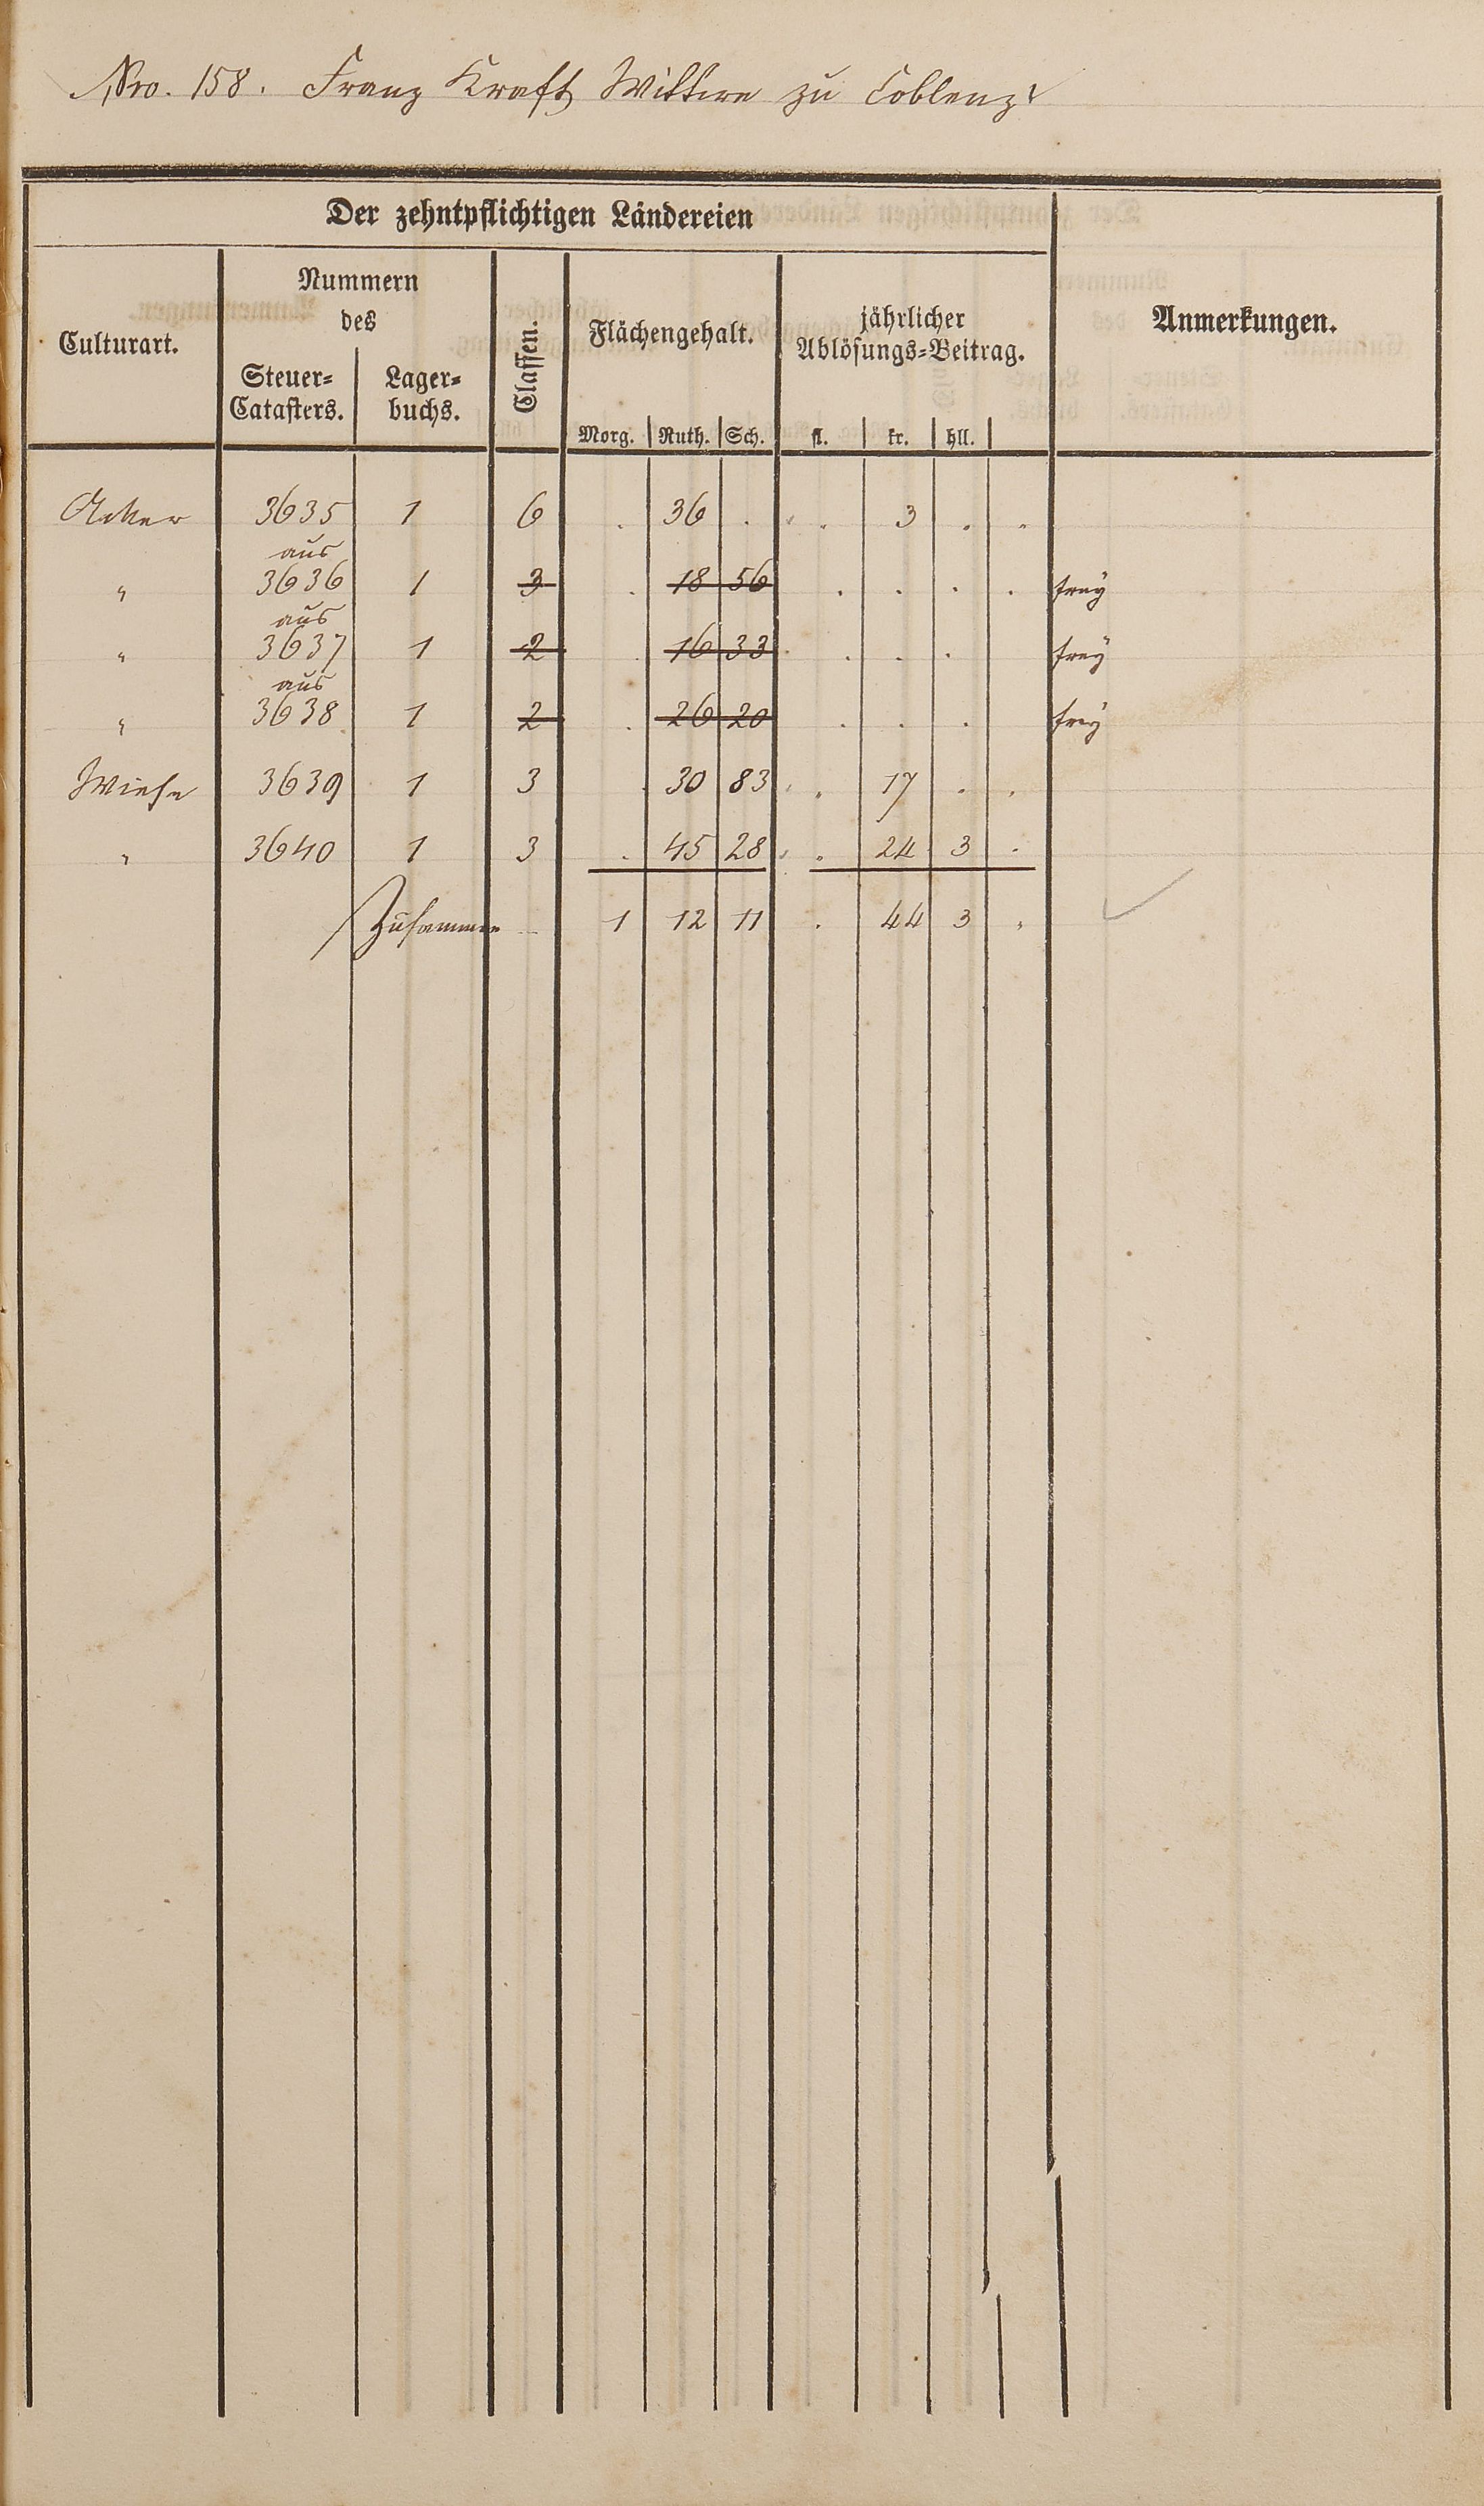 Nro. 158. Franz Kraft Wittwe zu Coblenz
Der zehntpflichtigen Ländereien
Culturart.
Nummern
des
Steuer=
Catasters.
Lager=
buchs.
Classen.
Flächengehalt.
Morg. Ruth. Sch.
jährlicher
Ablösungs=Beitrag.
fl. kr. hll.
Anmerkungen.
Acker 3635 1 6 . 36 . . 3 . .
aus
" 3636 1 3 . 18 56 . . . . frey
aus
" 3637 1 2 . 16 33 . . . frey
aus
" 3638 1 2 . 26 20 . . . frey
Wiese 3639 1 3 . 30 83 . 17 . .
" 3640 1 3 . 45 28 . 24 3 .
Zusammen 1 12 11 . 44 3 .